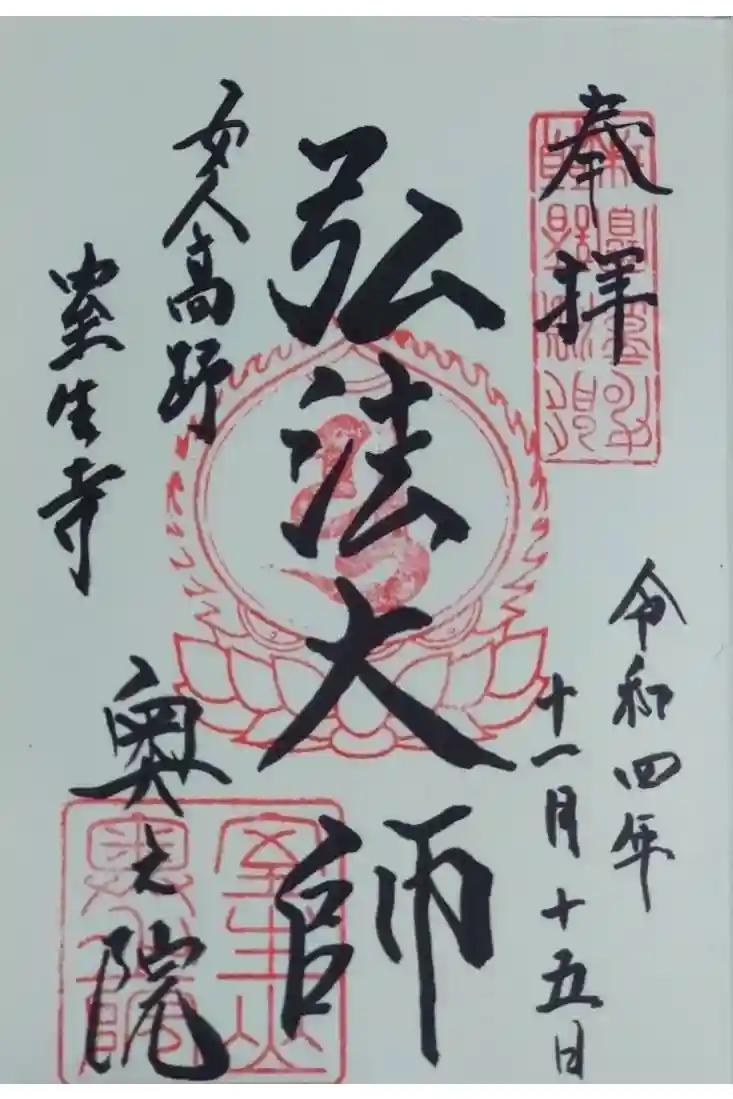 奉拝
令和四年
十一月十五日
弘法大師
女人高野
室生寺
奥之院
室生山
奥之院